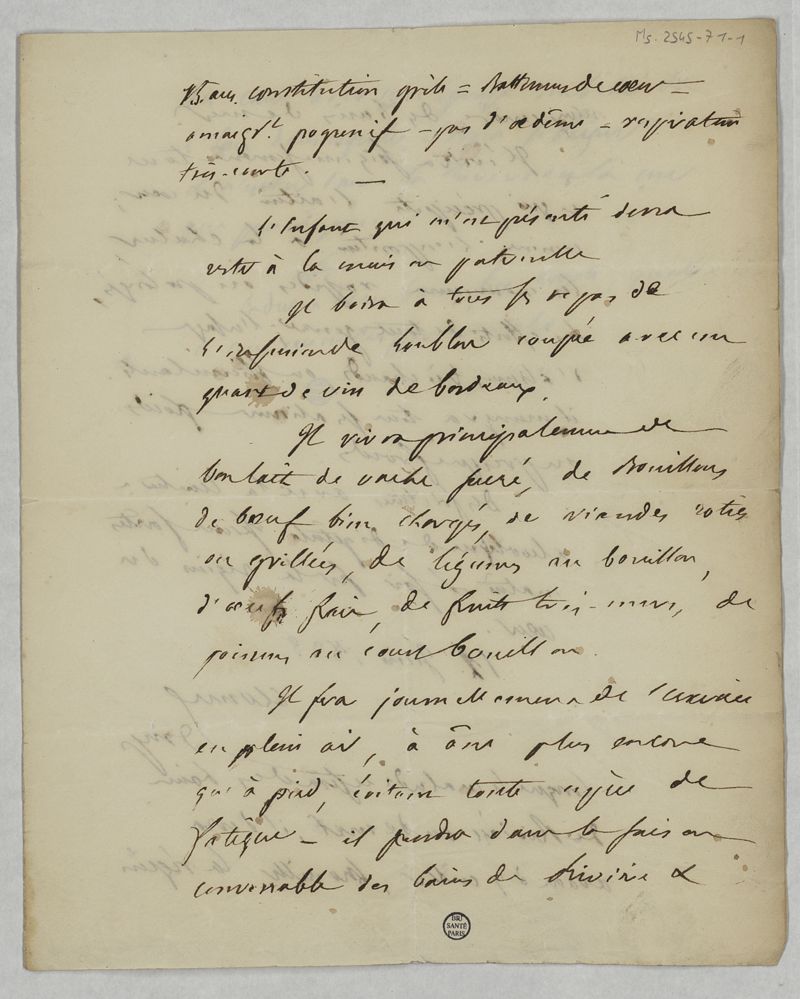 Ms. 2545-71-1
15 ans. constitution grêle = Battemens de cœur =
amaigrt. progressif - pas d'œdême = respiration
très-courte.
L'enfant qui m'est présenté devra
rester à la maison paternelle
Il boira à tous ses repas de
l'infusion de houblon coupée avec un
quart de vin de bordeaux.
Il vivra principalement de
bon lait de vache sucré, de Bouillons
de bœuf bien chargés, de viandes roties
ou grillées, de légumes au bouillon,
d'œufs frais, de fruits très-murs, de
poissons au court bouillon.
Il fera journellement de l'exercice
en plein air, à âne plus encore
qu'à pied, évitant toute espèce de
fatigue - il prendra dans la saison
convenable des bains de Rivière &
BIU
SANTÉ
PARIS